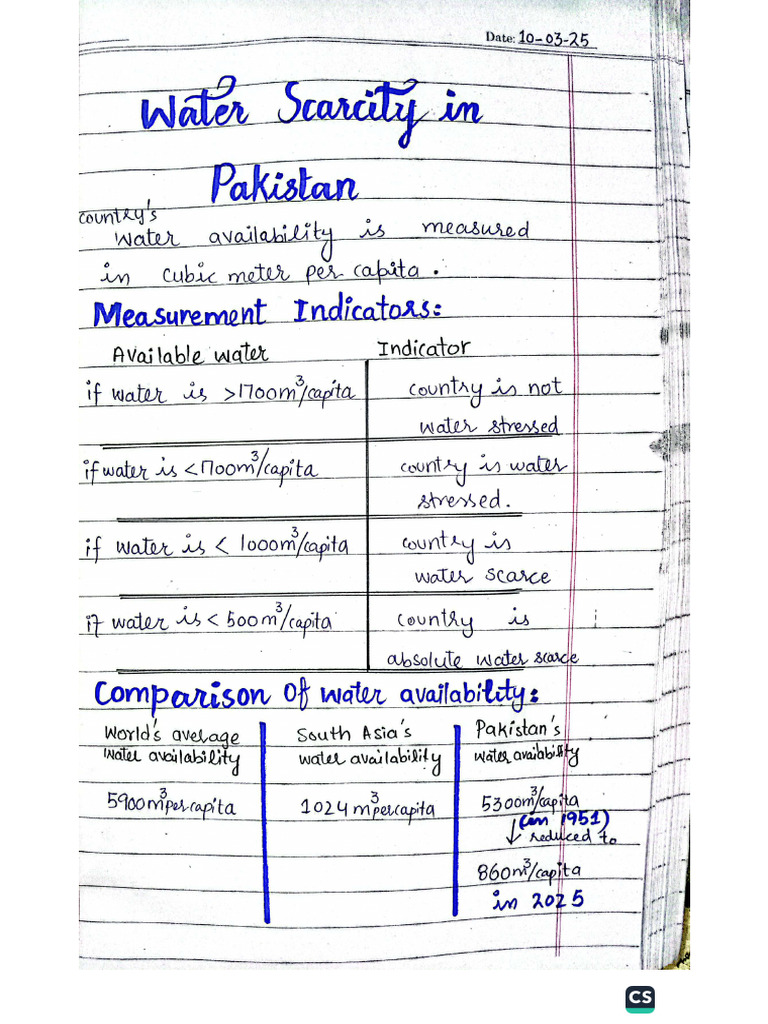 Date: 10-03-25
Water Scarcity in
Pakistan
country's
water availability is measured
in cubic meter per capita.
Measurement Indicators:
Available water Indicator
if water is >1700m³/capita country is not
water stressed
if water is <1700m³/capita country is water
stressed.
if water is < 1000m³/capita country is
water scarce
if water is < 500m³/capita country is
absolute water scarce
Comparison Of water availability:
World's average South Asia's Pakistan's
water availability water availability water availability
5900m³per capita 1024m³per capita 5300m³/capita
(in 1951)
↓ reduced to
860m³/capita
in 2025
CS